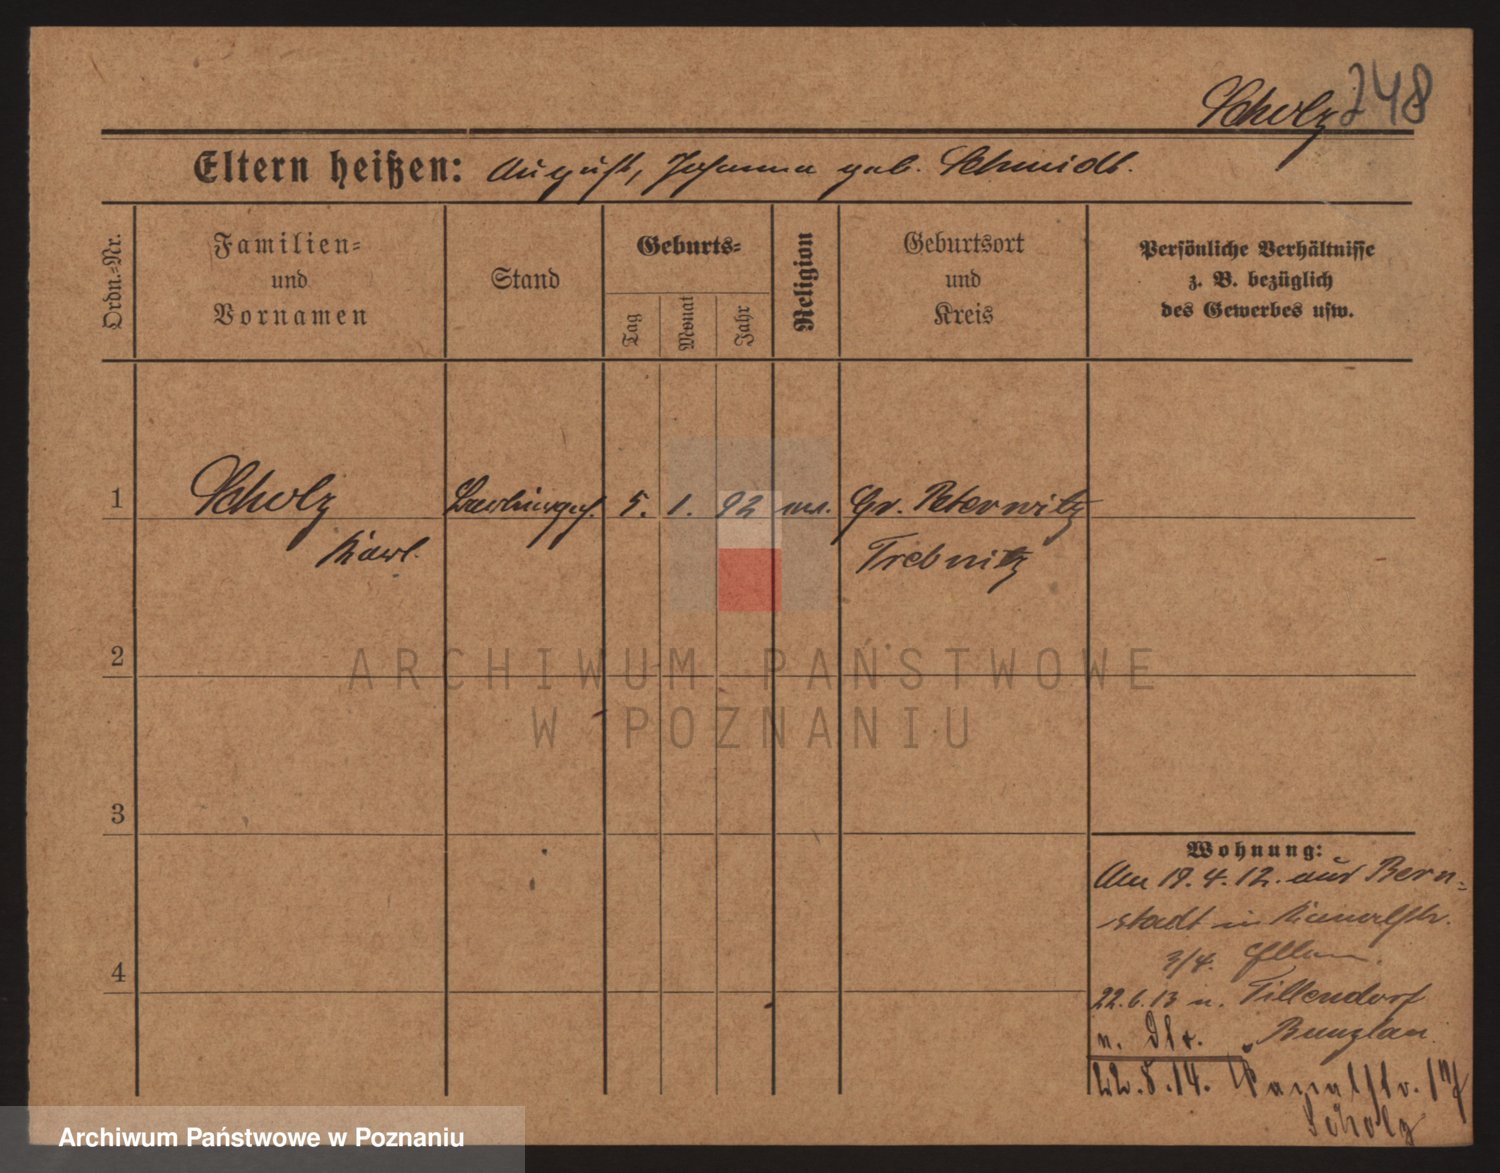 Scholz 248
Eltern heißen: August, Johanna geb. Schmidt.
Ordn.-Nr.
Familien- und Vornamen
Stand
Geburts-
Tag
Monat
Jahr
Religion
Geburtsort und Kreis
Persönliche Verhältnisse
z. B. bezüglich
des Gewerbes usw.
1 Scholz 5. 1. 92 Gr. Peterwitz
Karl. Trebnitz
2
3
4
ARCHIWUM PAŃSTWOWE
W POZNANIU
Wohnung:
Am 19.4.12. aus Bern-
stadt in
3/4.
22.6.13 n. Tillendorf
n. Bunzlau
22.8.14. Kanalstr. 17
Scholz
Archiwum Państwowe w Poznaniu